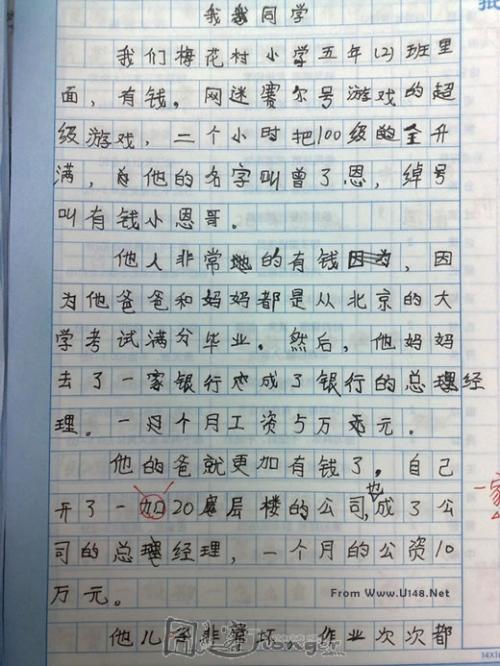 我同学
我们梅花村小学五年(2)班里
面，有钱。网迷赛尔号游戏的超
级游戏，二个小时把100级的全升
满，他的名字叫曾了恩，绰号
叫有钱小恩哥。
他人非常地的有钱，因
为他爸爸和妈妈都是从北京的大
学考试满分毕业。然后，他妈妈
去了一家银行成了银行的总理经
理。一个月工资5万元。
他的爸就更加有钱了，自己
开了一加20层楼的公司，也成了公
一家
司的总经理，一个月的公资10
万元。
From Www.U148.Net
他儿子非常坏，作业次次都